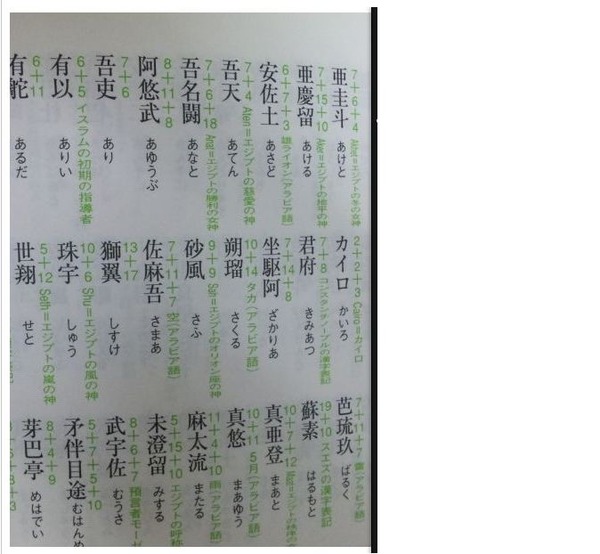 7+6+4
亜圭斗 あけと
7+15+10 エジプトの地平の神
亜慶留 あける
6+7+3 雄ライオン(アラビア語)
安佐土 あさど
7+4 Aten=エジプトの慈愛の神
吾天 あてん
7+6+18 エジプトの勝利の女神
吾名闘 あなと
8+11+8
阿悠武 あゆうぶ
7+6
吾吏 あり
6+5 イスラムの初期の指導者
有以 ありい
6+11
有舵 あるだ
2+2+3 Cairo=カイロ
カイロ かいろ
7+8 コンスタンチノープルの漢字表記
君府 きみあつ
7+14+8
坐駆阿 ざかりあ
10+14 タカ(アラビア語)
朔瑠 さくる
9+9 エジプトのオリオン座の神
砂風 さふ
7+11+7 空(アラビア語)
佐麻吾 さまあ
13+17
獅翼 しすけ
10+6 Shu=エジプトの風の神
珠宇 しゅう
5+12 Seth=エジプトの嵐の神
世翔 せと
7+11+7 (アラビア語)
芭琉玖 ばるく
19+10 スエズの漢字表記
蘇素 はるもと
10+7+12
真亜登 まあと
10+11 5月(アラビア語)
真悠 まあゆう
11+4+10 雨(アラビア語)
麻太流 またる
5+15+10 エジプトの呼称
未澄留 みする
8+6+7 預言者モーゼ
武宇佐 むうさ
5+7+5+10
矛伴目途 むはんめ
8+4+9
芽巴亭 めはでい